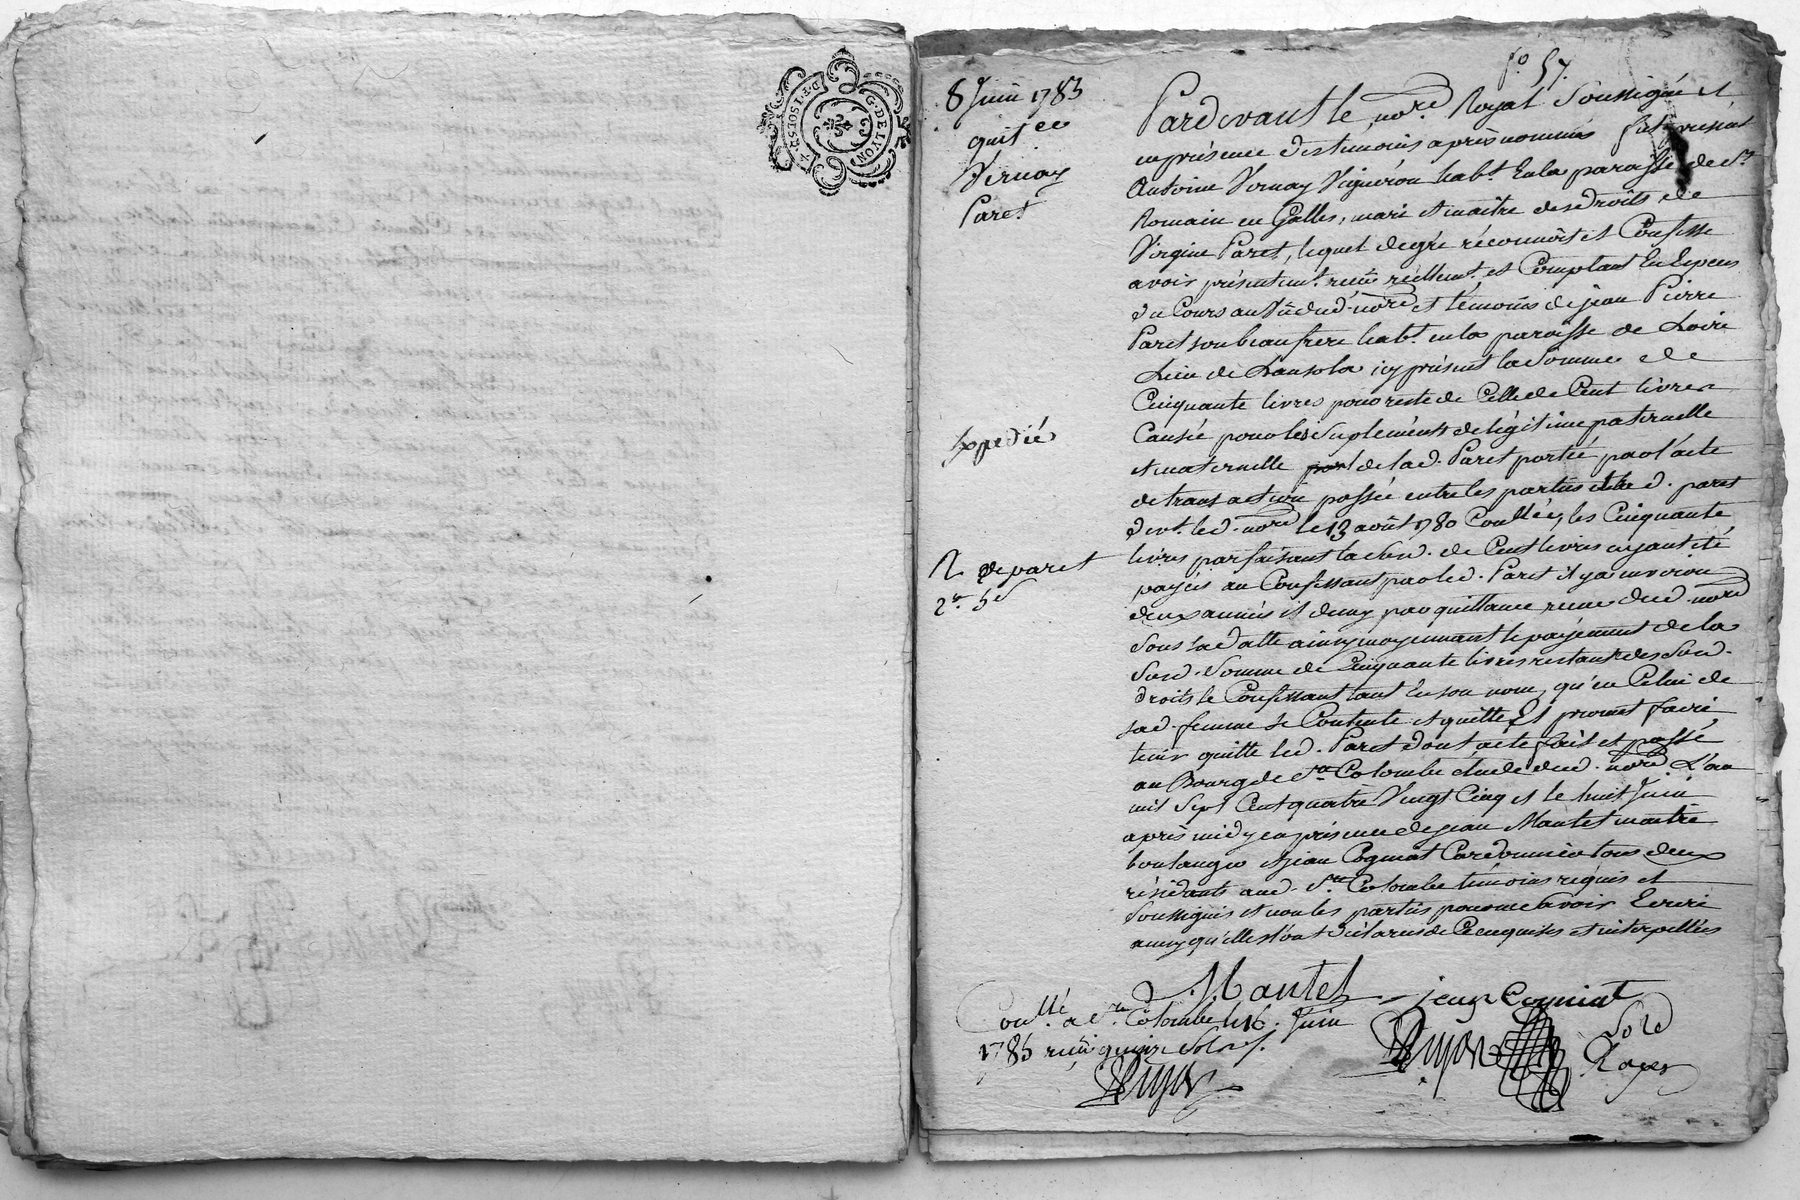 G. DE LYON
D.F. 1 SOL 8 S.R.A
f.o 57.
8 Juin 1785
quit.ce
Vernay
Paret
Expedié
R de paret
2.# 5 s
Pardevant le no.re Royal Soussigné et
en présence des temoins après nommés fut present
Antoine Vernay Vigneron hab.t En la paroisse de S.t
Romain en Galles, mari et maitre des droits de
Virginie Paret, lequel de gré réconnoit et Confesse
avoir présentem.t reçu réellem.t et Comptant En Espèces
du Cours au vû dud. no.re et témoins de jean Pierre
Paret son beaufrere hab.t en la paroisse de Loire
Lieu de Lansola icy présent la Somme de
Cinquante livres pour reste de Celle de Cent livres
Causée pour les Suplements de légitime paternelle
et maternelle de lad. Paret portée par l'acte
de transaction passée entre les parties led. paret
dev.t led. no.re le 13 août 1780 Con.llée, les Cinquante
livres parfaisant lad. de Cent livres ayant été
payées au Confessant par led. Paret il y a environ
deux années et demy par quittance reçue dud. no.re
Sous sa datte ainsy moyennant le payement de la
Susd. Somme de Cinquante livres restante des Susd.
droits le Confessant tant En son nom, qu'en Celui de
sad. femme Se Contente et quitte Et promet faire
tenir quitte led. Paret dont acte fait et passé
au Bourg de S.te Colombe étude dud. no.re L'an
mil Sept Cent quatre Vingt Cinq et le huit Juin
après midy en présence de jean Mantet maitre
boulanger et jean Cogniat Cordonnier tous deux
résidants aud. S.te Colombe témoins requis et
Soussignés et non les parties pour ne Savoir Ecrire
ainsy qu'elles l'ont déclaré de Ce enquises et interpellées
Mantet jean Cogniat
Con.llé à S.te Colombe le 16. Juin
1785 reçu quinze Sols
Dujon
Dujon
No.re
Royal